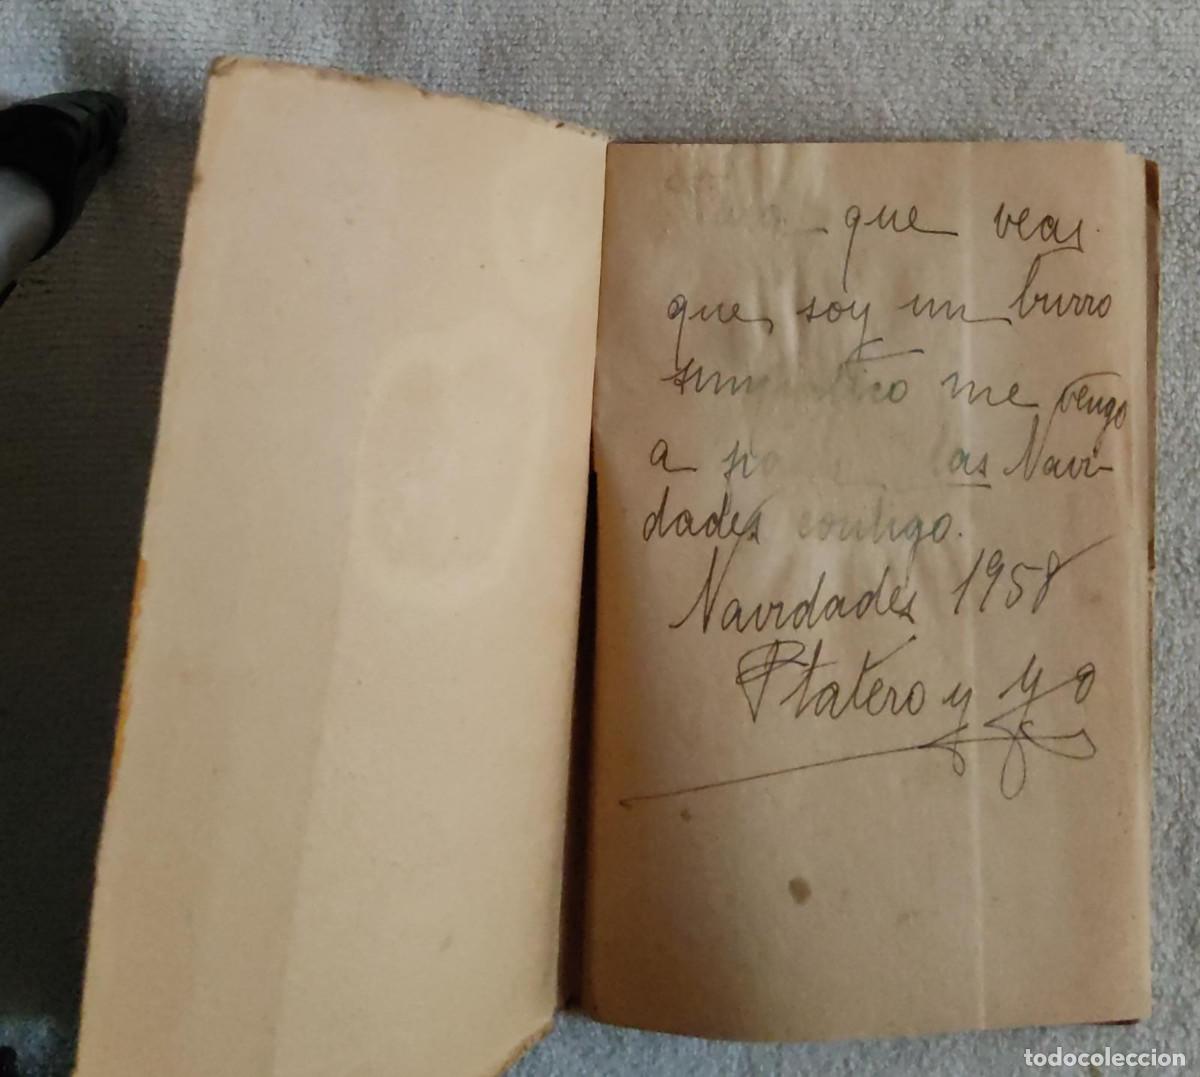 Para que veas
que soy un burro
simpático me vengo
a las Navi-
dades contigo.
Navidades 1958
Platero y Yo
todocoleccion